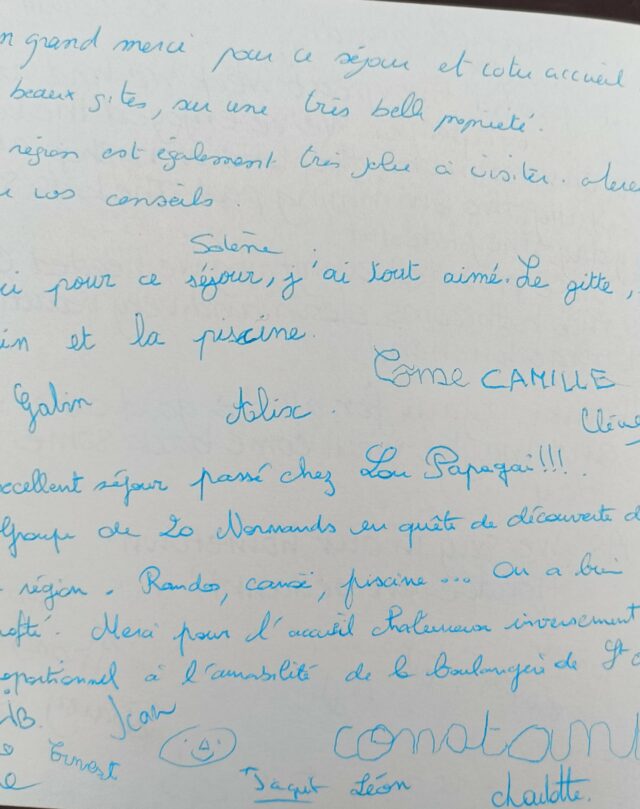 n grand merci pour ce séjour et votre accueil
beaux gites, sur une très belle propriété.
région est également très jolie à visiter. Merci
vos conseils.
Solène.
ci pour ce séjour, j'ai tout aimé. Le gitte,
in et la piscine.
Come CAMILLE
Gabin Alix.
excellent séjour passé chez Lou Papagai!!!.
Groupe de 20 Normands en quête de découverte d
région. Randos, canoë, piscine... On a bien
ofité. Merci pour l'accueil chaleureux inversement
oportionnel à l'amabilité de la boulangère de St
Jean
Ernest constant
Jaqut Léon charlotte.